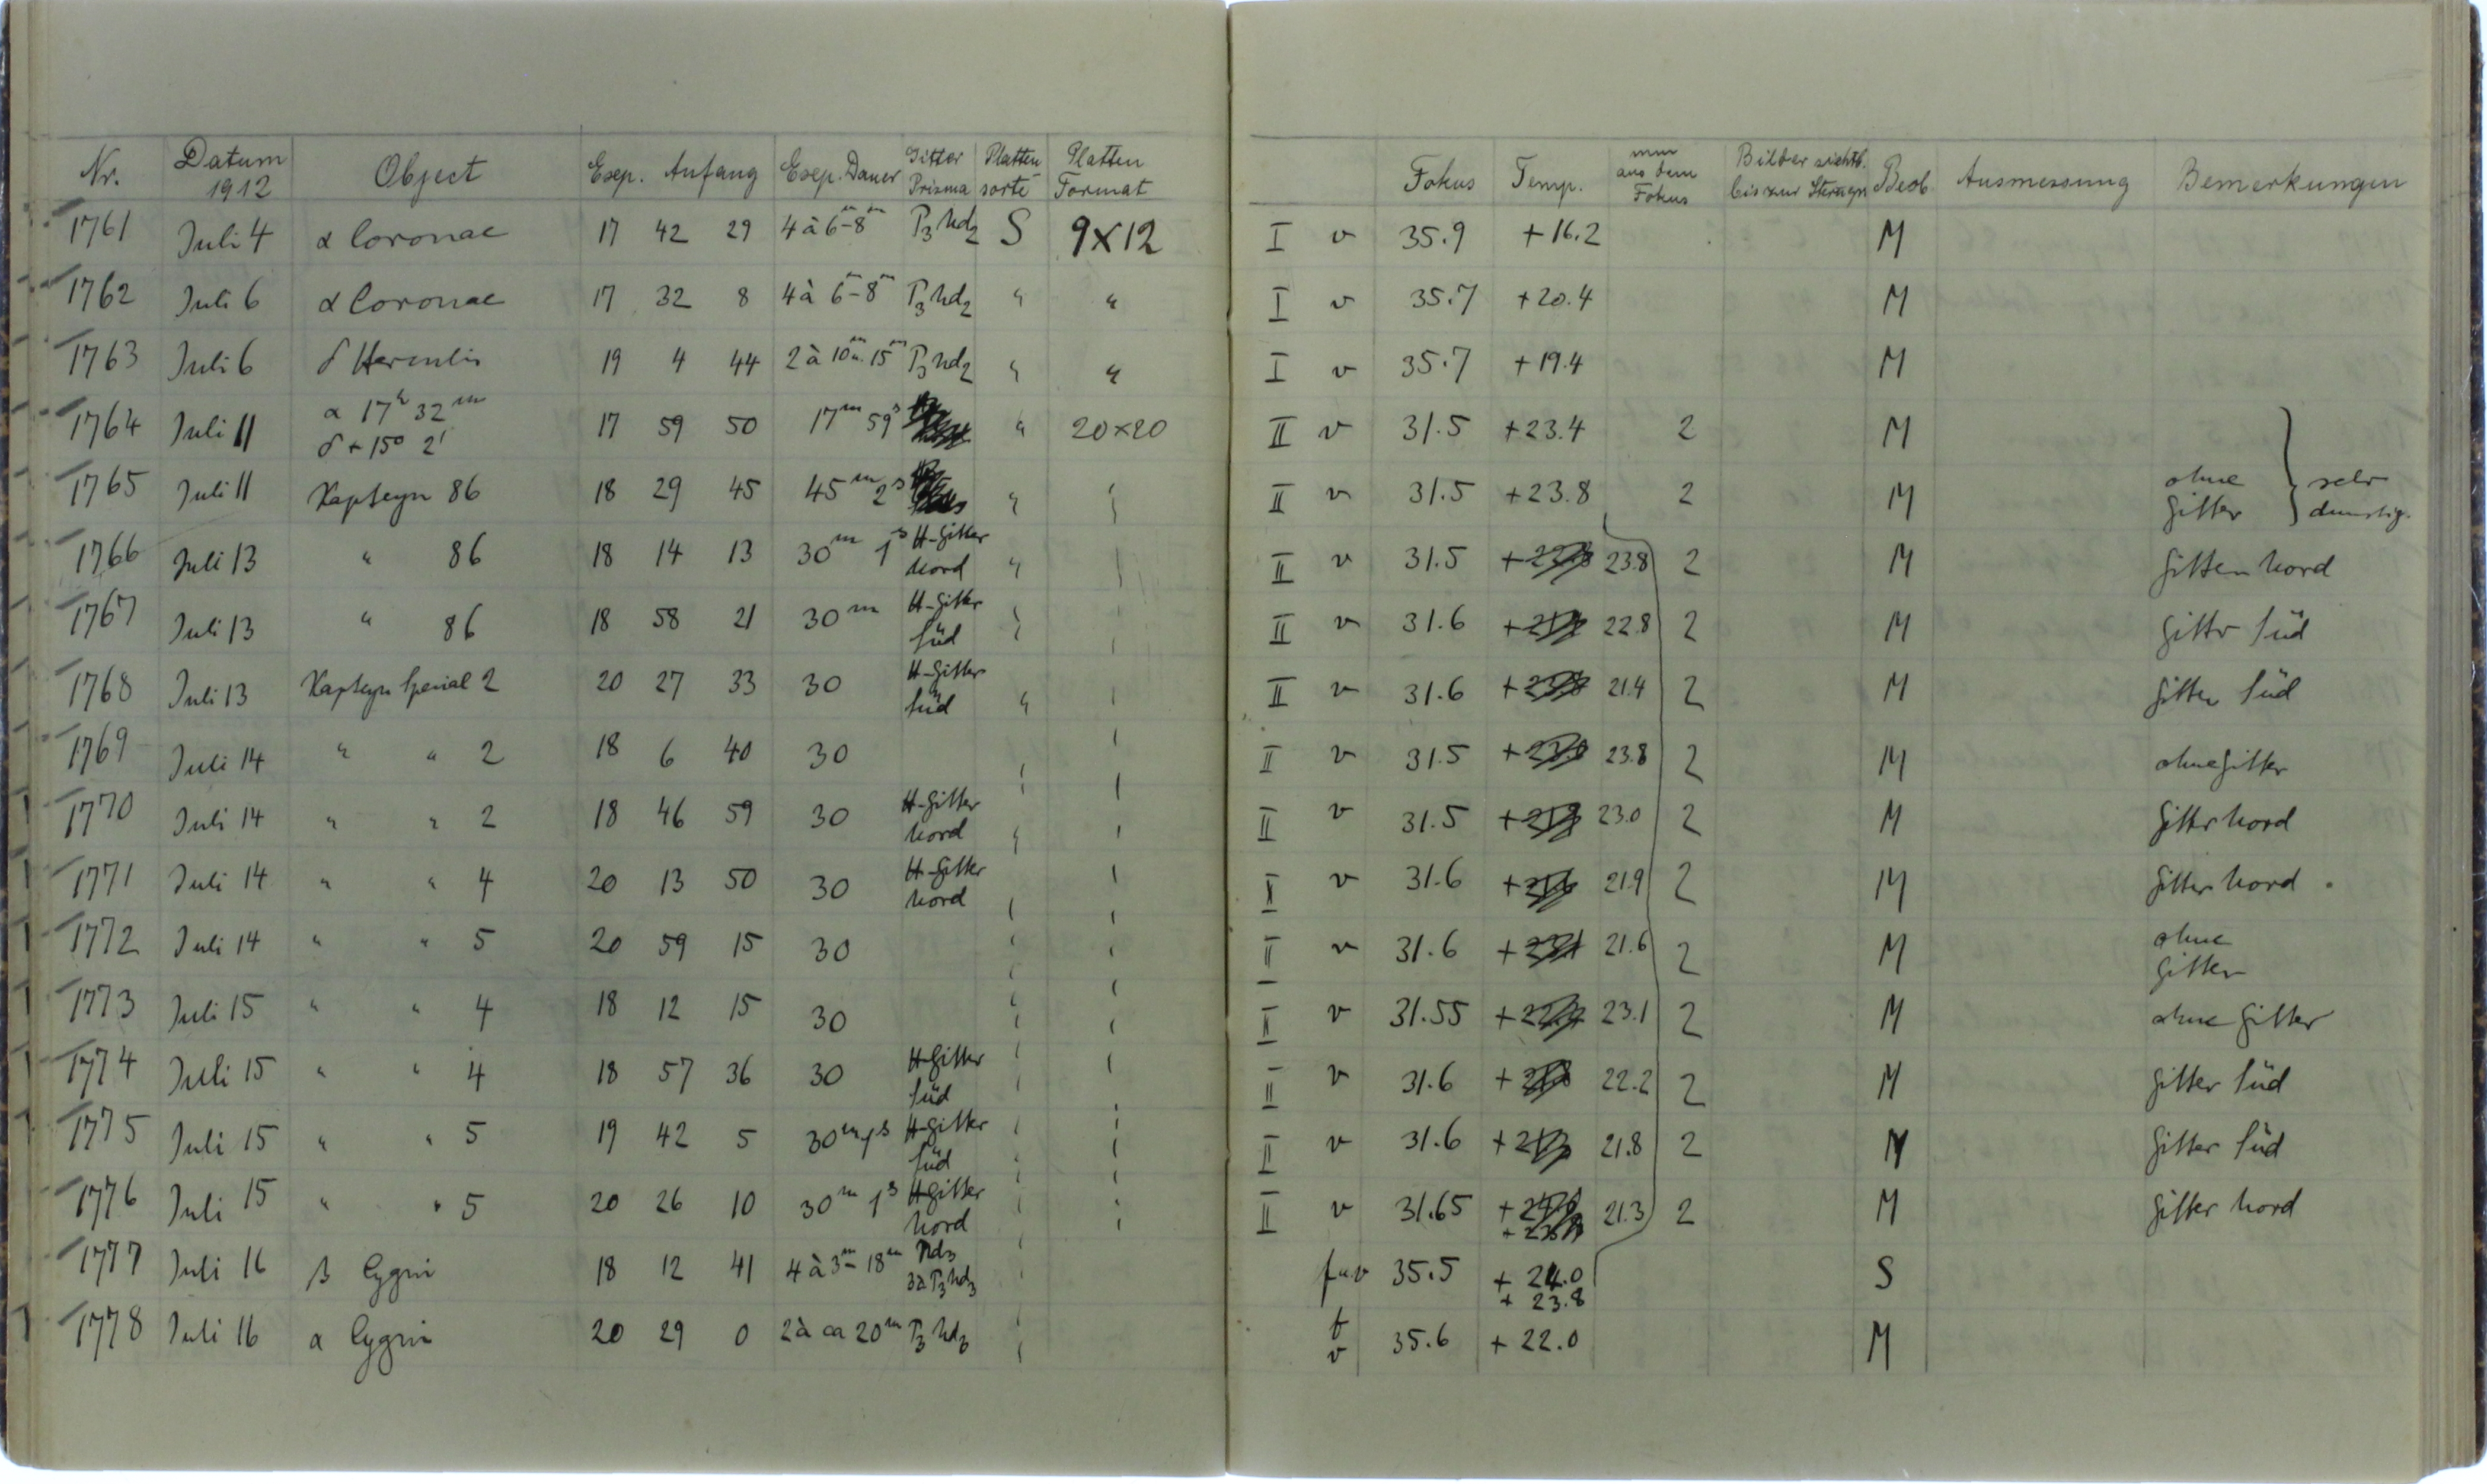 Nr. Datum 1912 Object Exp. Anfang Exp. Dauer Gitter Prisma Platten sorte Platten Format Fokus Temp. mm aus dem Fokus Bilder sichtb. bis zur Sterngr. Beob. Ausmessung Bemerkungen
1761 Juli 4 α Coronae 17 42 29 4 à 6m-8m P3 Nd2 S 9X12 I v 35.9 +16.2 M
1762 Juli 6 α Coronae 17 32 8 4 à 6m-8m P3 Nd2 " " I v 35.7 +20.4 M
1763 Juli 6 δ Herculis 19 4 44 2 à 10m u. 15m P3 Nd2 " " I v 35.7 +19.4 M
1764 Juli 11 α 17h 32m δ + 15° 2' 17 59 50 17m 59s " 20×20 II v 31.5 +23.4 2 M
1765 Juli 11 Kapteyn 86 18 29 45 45m 2s " II v 31.5 +23.8 2 M ohne Gitter } sehr dunstig.
1766 Juli 13 " 86 18 14 13 30m 1s H-Gitter Nord " II v 31.5 + 23.8 2 M Gitter Nord
1767 Juli 13 " 86 18 58 21 30m H-Gitter Süd " II v 31.6 + 22.8 2 M Gitter Süd
1768 Juli 13 Kapteyn Spezial 2 20 27 33 30 H-Gitter Süd " II v 31.6 + 21.4 2 M Gitter Süd
1769 Juli 14 " " 2 18 6 40 30 II v 31.5 + 23.8 2 M ohne Gitter
1770 Juli 14 " " 2 18 46 59 30 H-Gitter Nord " II v 31.5 + 23.0 2 M Gitter Nord
1771 Juli 14 " " 4 20 13 50 30 H-Gitter Nord II v 31.6 + 21.9 2 M Gitter Nord
1772 Juli 14 " " 5 20 59 15 30 II v 31.6 + 21.6 2 M ohne Gitter
1773 Juli 15 " " 4 18 12 15 30 II v 31.55 + 23.1 2 M ohne Gitter
1774 Juli 15 " " 4 18 57 36 30 H-Gitter Süd II v 31.6 + 22.2 2 M Gitter Süd
1775 Juli 15 " " 5 19 42 5 30m 1s H-Gitter Süd II v 31.6 + 21.8 2 M Gitter Süd
1776 Juli 15 " " 5 20 26 10 30m 1s H-Gitter Nord II v 31.65 + 21.3 2 M Gitter Nord
1777 Juli 16 β Cygni 18 12 41 4 à 3m-18m Nd3 3 à P3 Nd3 f u v 35.5 + 24.0 + 23.8 S
1778 Juli 16 α Cygni 20 29 0 2 à ca 20m P3 Nd3 f v 35.6 + 22.0 M